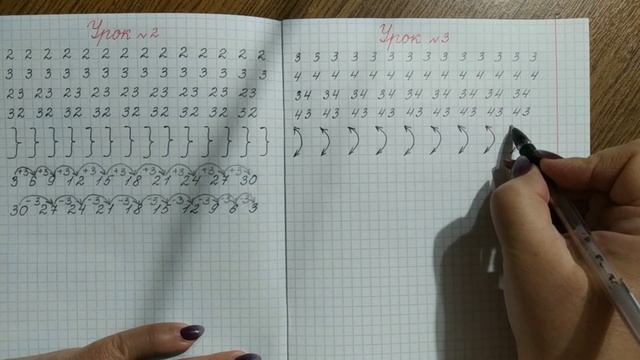 Урок №2
2 2 2 2 2 2 2 2 2 2 2 2 2 2
3 3 3 3 3 3 3 3 3 3 3 3 3 3
23 23 23 23 23 23 23 23 23
32 32 32 32 32 32 32 32 32
} } } } } } } } } } } }
+3 +3 +3 +3 +3 +3 +3 +3 +3
3 6 9 12 15 18 21 24 27 30
-3 -3 -3 -3 -3 -3 -3 -3 -3
30 27 24 21 18 15 12 9 6 3
Урок №3
3 3 3 3 3 3 3 3 3 3 3 3 3 3
4 4 4 4 4 4 4 4 4 4 4 4 4 4
34 34 34 34 34 34 34 34 34
43 43 43 43 43 43 43 43 43